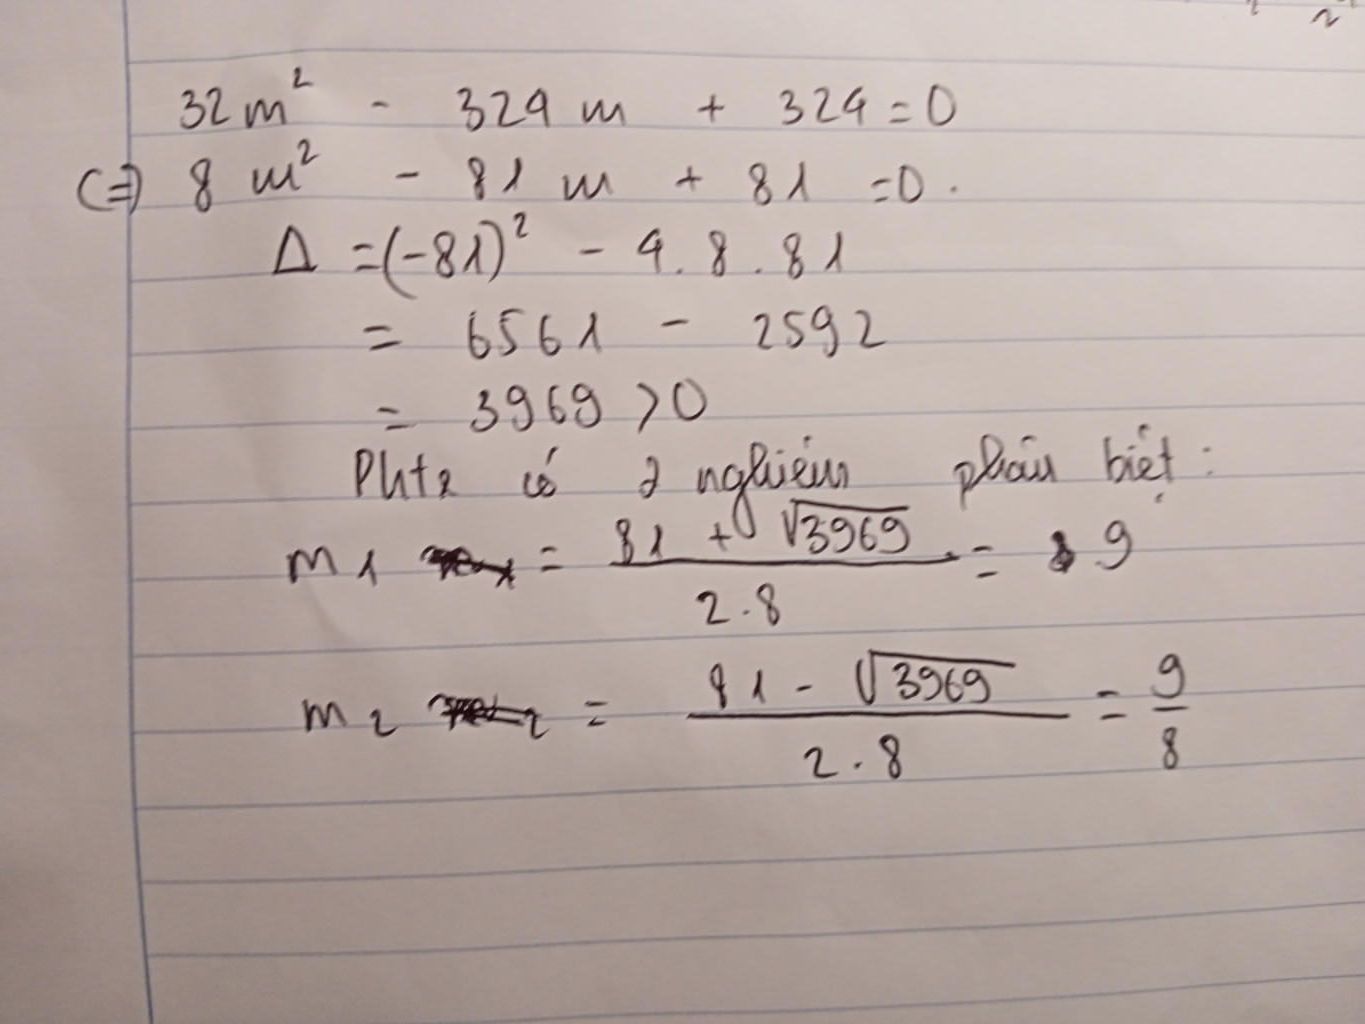 32m² - 324m + 324 = 0
(=) 8m² - 81m + 81 = 0.
Δ = (-81)² - 4.8.81
= 6561 - 2592
= 3969 > 0
có 2 nghiệm phân biệt:
m1 = (81 + √3969) / (2.8) = 9
m2 = (81 - √3969) / (2.8) = 9/8